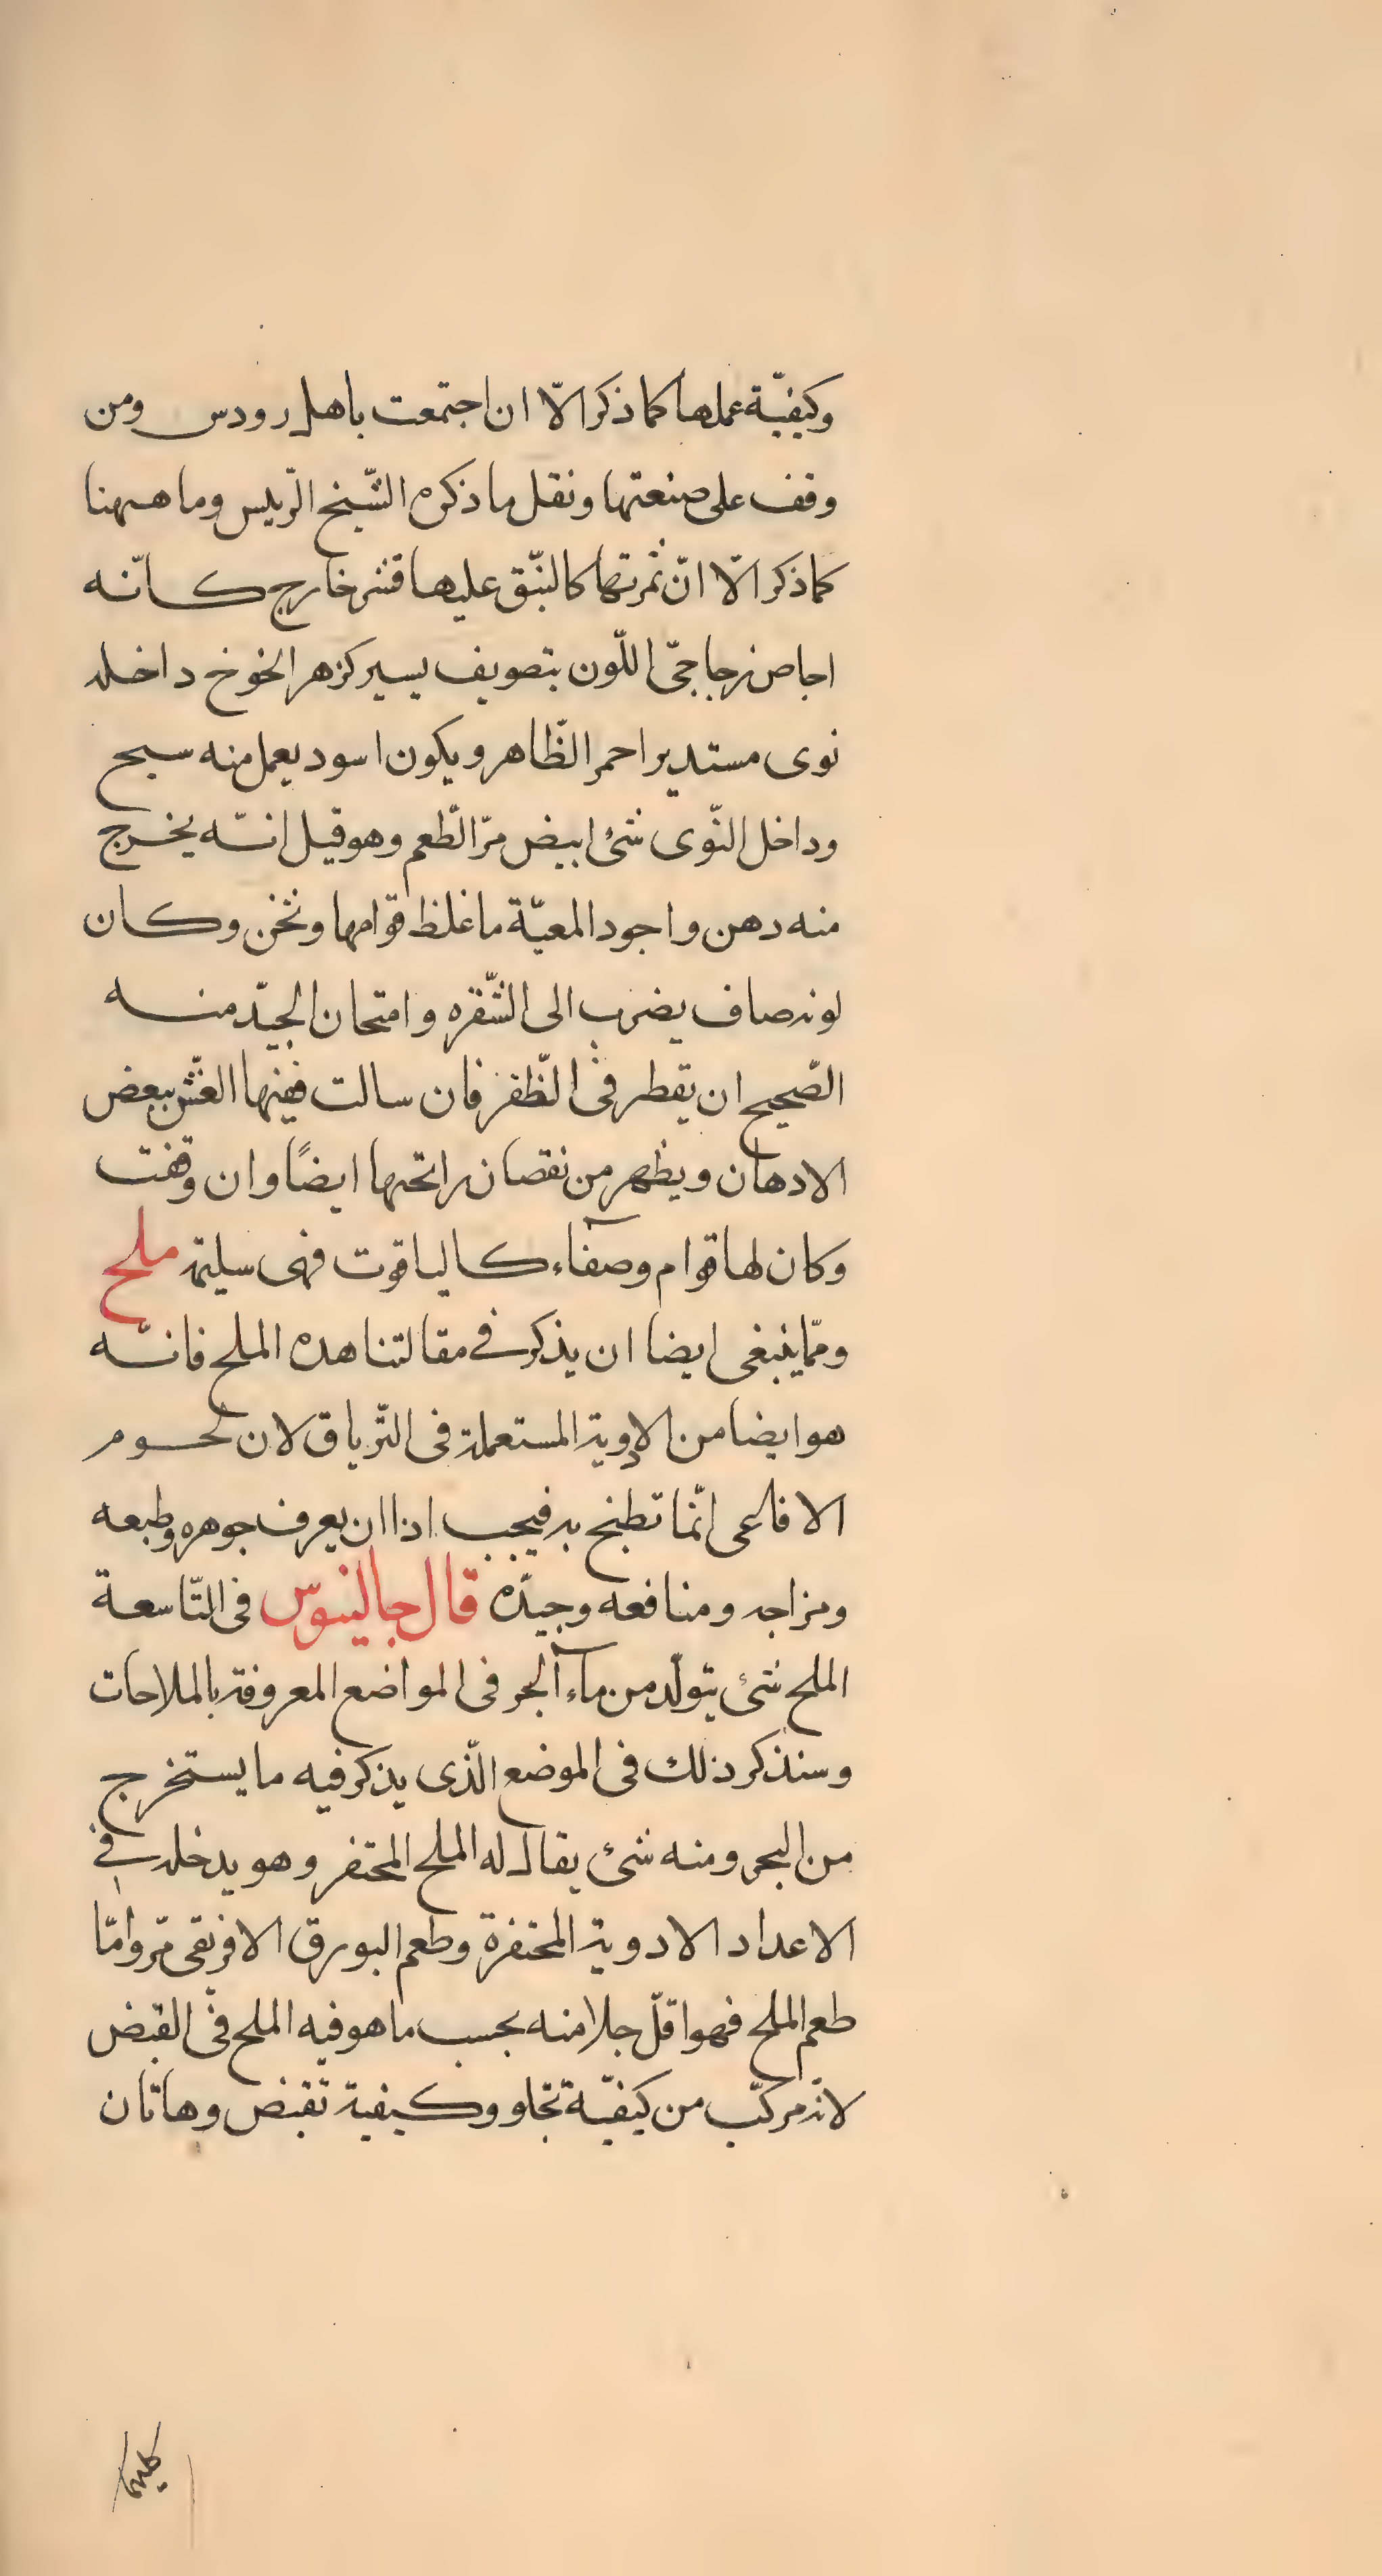 وكيفيّة عملها كما ذكر الّا ان اجتمعت باهل رودس ومن
وقف على صنعتها ونقل ما ذكره الشّيخ الرّييس وما هيهنا
كما ذكر الّا انّ ثمرتها كالنبّق عليها قشر خارج كانّه
اجاص زجاجيّ اللّون بتصويف يسير كزهر الخوخ داخله
نوى مستدير احمر الظّاهر ويكون اسود يعمل منه سبح
وداخل النّوى شئ ابيض مرّ الطّعم وهو قيل انّه يخرج
منه دهن واجود المعيّة ما غلظ قوامها وثخن وكان
لونه صاف يضرب الى الشّقره وامتحان الجيّد منه
الصّحيح ان يقطر فى الظّفر فان سالت ففيها الغشّ ببعض
الادهان ويظهر من نقصان رائحتها ايضًا وان وقفت
وكان لها قوام وصفآء كالياقوت فهى سليمة ملح
وممّا ينبغى ايضا ان يذكر فى مقالتنا هذه الملح فانّه
هو ايضا من الادوية المستعملة فى التّرياق لان لحوم
الافاعى انّما تطبخ به فيجب اذا ان يعرف جوهره وطبعه
ومزاجه ومنافعه وجيدّه قال جالينوس فى التّاسعة
الملح شئ يتولّد من مآء البحر فى المواضع المعروفة بالملاحات
وسنذكر ذلك فى الموضع الّذى يذكر فيه ما يستخرج
من البحر ومنه شئ يقال له الملح المحتفر وهو يدخله فى
الاعداد الادوية المحتفرة وطعم البورق الافريقى مرّ وامّا
طعم الملح فهو اقلّ جلا منه بحسب ما هو فيه الملح فى القبض
لانّه مركّب من كيفيّة تجلو وكيفية تقبض وهاتان